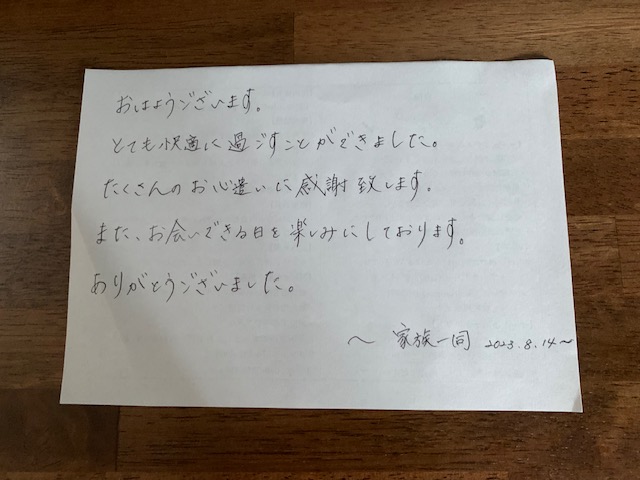 おはようございます。
とても快適に過ごすことができました。
たくさんのお心遣いに感謝致します。
また、お会いできる日を楽しみにしております。
ありがとうございました。
〜 家族一同 2023.8.14〜